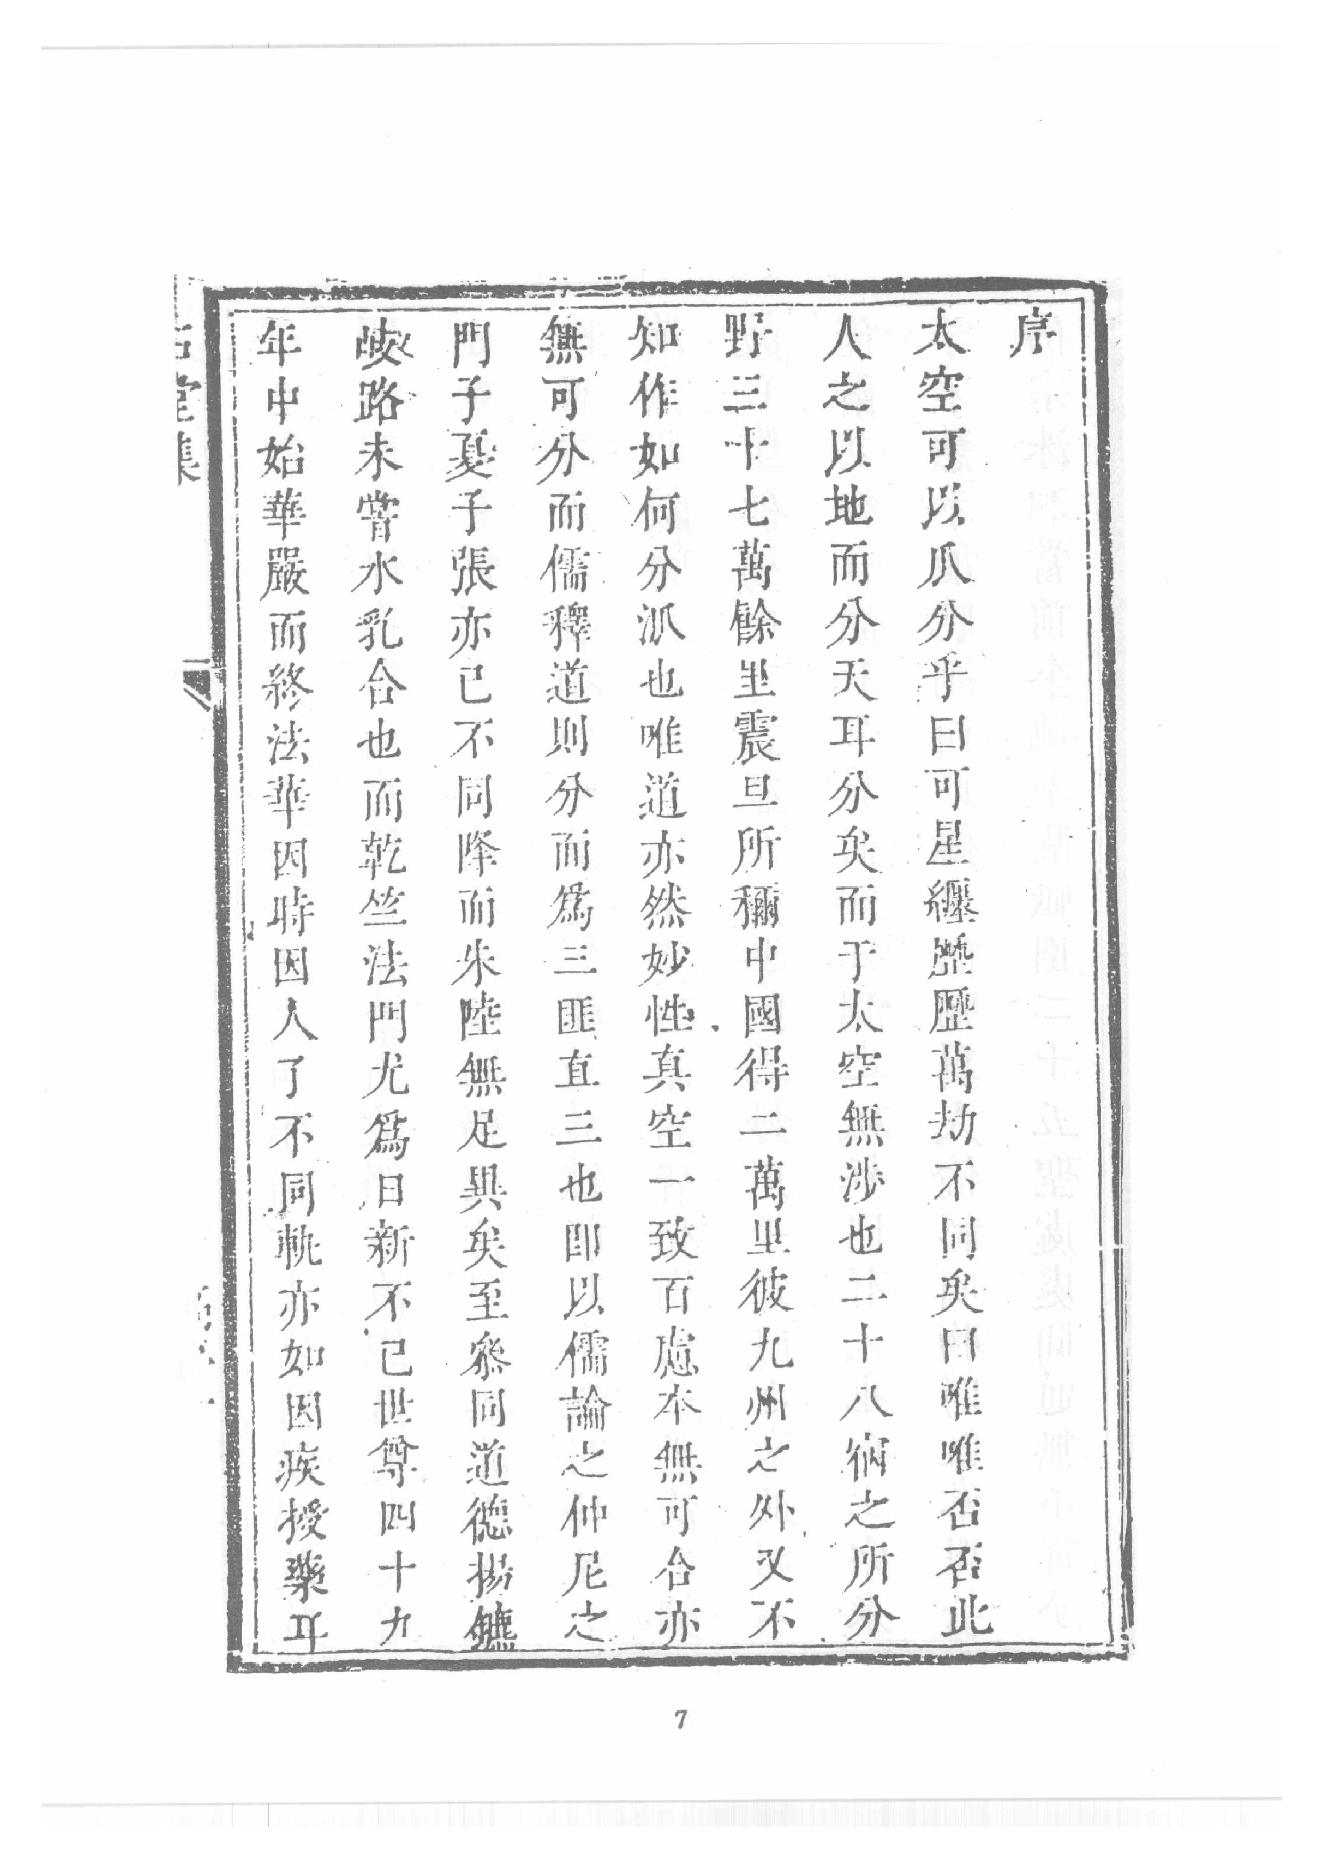 序
太空可以爪分乎曰可星纏歷歷萬劫不同矣曰唯唯否否此
人之以地而分天耳分矣而于太空無涉也二十八宿之所分
野三十七萬餘里震旦所稱中國得二萬里彼九州之外又不
知作如何分派也唯道亦然妙性真空一致百慮本無可合亦
無可分而儒釋道則分而爲三匪直三也即以儒論之仲尼之
門子夏子張亦已不同降而朱陸無足異矣至叅同道德揚鑣
岐路未嘗水乳合也而乾竺法門尤爲日新不已世尊四十九
年中始華嚴而終法華因時因人了不同軌亦如因疾授藥耳
石堂集
7